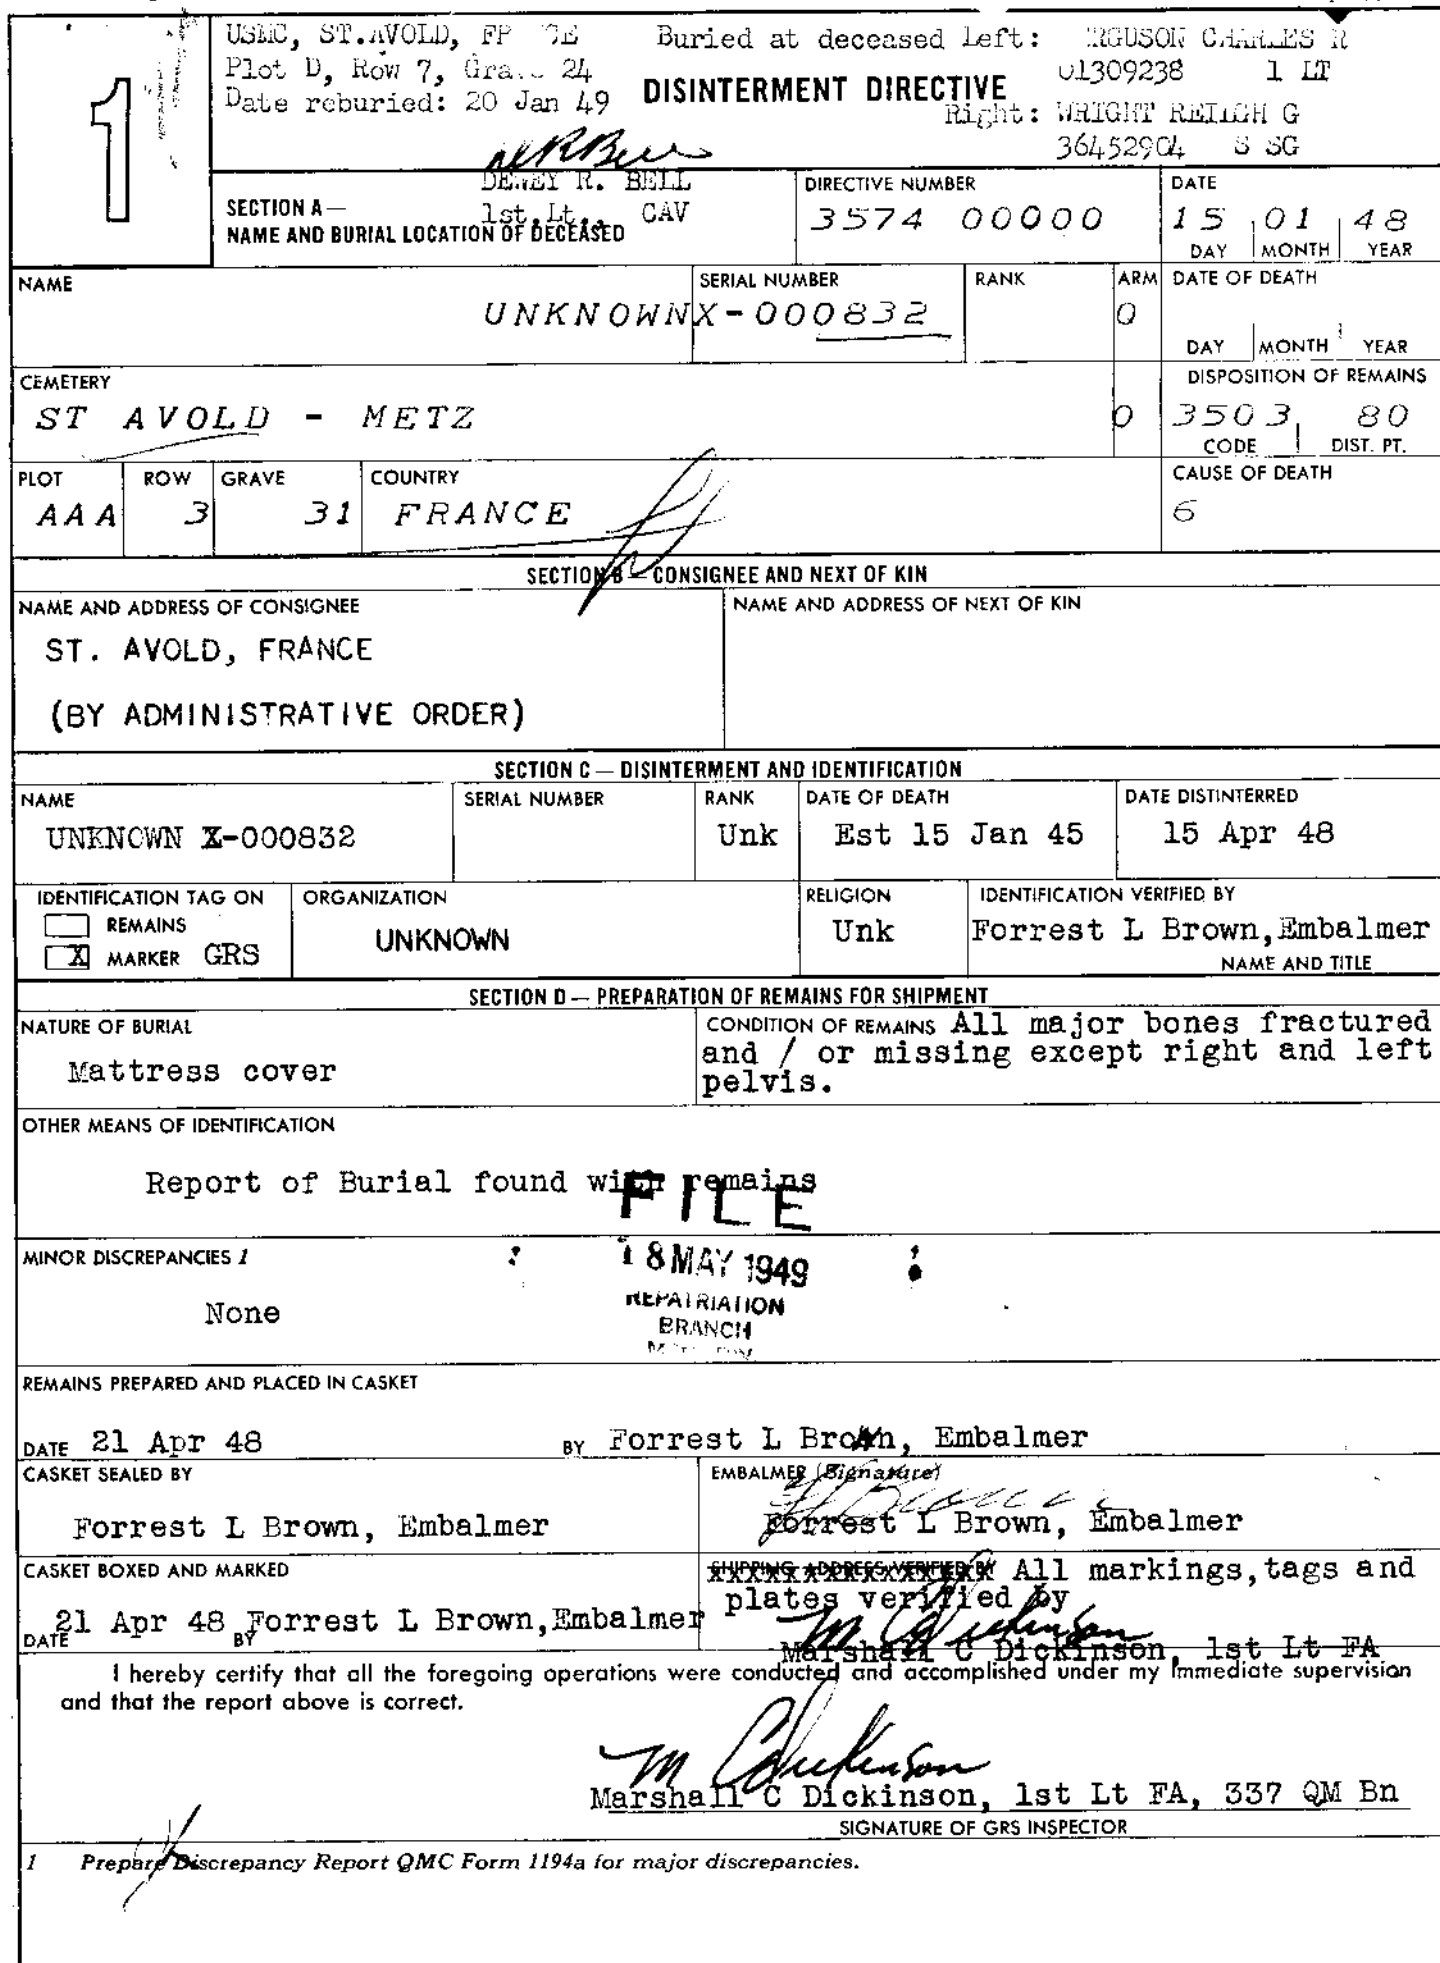 1
USMC, ST.AVOLD, Buried at deceased left: CHARLES R
Plot D, Row 7, 24 01309238 1 LT
Date reburied: 20 Jan 49 DISINTERMENT DIRECTIVE
Right: WRIGHT G
36452904 S SG
DEWEY R. BELL
1st Lt., CAV
SECTION A—
NAME AND BURIAL LOCATION OF DECEASED
DIRECTIVE NUMBER
3574 00000
DATE
15 01 48
DAY MONTH YEAR
NAME
UNKNOWN
SERIAL NUMBER
X-000832
RANK
ARM
0
DATE OF DEATH
DAY MONTH YEAR
CEMETERY
ST AVOLD - METZ
0
DISPOSITION OF REMAINS
3503 80
CODE DIST. PT.
PLOT
AAA
ROW
3
GRAVE
31
COUNTRY
FRANCE
CAUSE OF DEATH
6
SECTION B — CONSIGNEE AND NEXT OF KIN
NAME AND ADDRESS OF CONSIGNEE
ST. AVOLD, FRANCE
(BY ADMINISTRATIVE ORDER)
NAME AND ADDRESS OF NEXT OF KIN
SECTION C — DISINTERMENT AND IDENTIFICATION
NAME
UNKNOWN X-000832
SERIAL NUMBER
RANK
Unk
DATE OF DEATH
Est 15 Jan 45
DATE DISTINTERRED
15 Apr 48
IDENTIFICATION TAG ON
REMAINS
X MARKER GRS
ORGANIZATION
UNKNOWN
RELIGION
Unk
IDENTIFICATION VERIFIED BY
Forrest L Brown,Embalmer
NAME AND TITLE
SECTION D — PREPARATION OF REMAINS FOR SHIPMENT
NATURE OF BURIAL
Mattress cover
CONDITION OF REMAINS All major bones fractured
and / or missing except right and left
pelvis.
OTHER MEANS OF IDENTIFICATION
Report of Burial found with remains
FILE
18 MAY 1949
REPATRIATION
BRANCH
MINOR DISCREPANCIES 1
None
REMAINS PREPARED AND PLACED IN CASKET
DATE 21 Apr 48 BY Forrest L Brown, Embalmer
CASKET SEALED BY
Forrest L Brown, Embalmer
EMBALMER (Signature)
Forrest L Brown, Embalmer
CASKET BOXED AND MARKED
DATE 21 Apr 48 BY Forrest L Brown,Embalmer
SHIPPING ADDRESS VERIFIED BY All markings,tags and
plates verified by
M C Dickinson
Marshall C Dickinson, 1st Lt FA
I hereby certify that all the foregoing operations were conducted and accomplished under my immediate supervision
and that the report above is correct.
M C Dickinson
Marshall C Dickinson, 1st Lt FA, 337 QM Bn
SIGNATURE OF GRS INSPECTOR
1 Prepare Discrepancy Report QMC Form 1194a for major discrepancies.